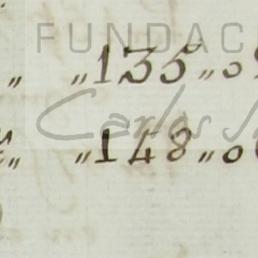 FUNDAC
„ „135„0
Carlos
„ „148„0